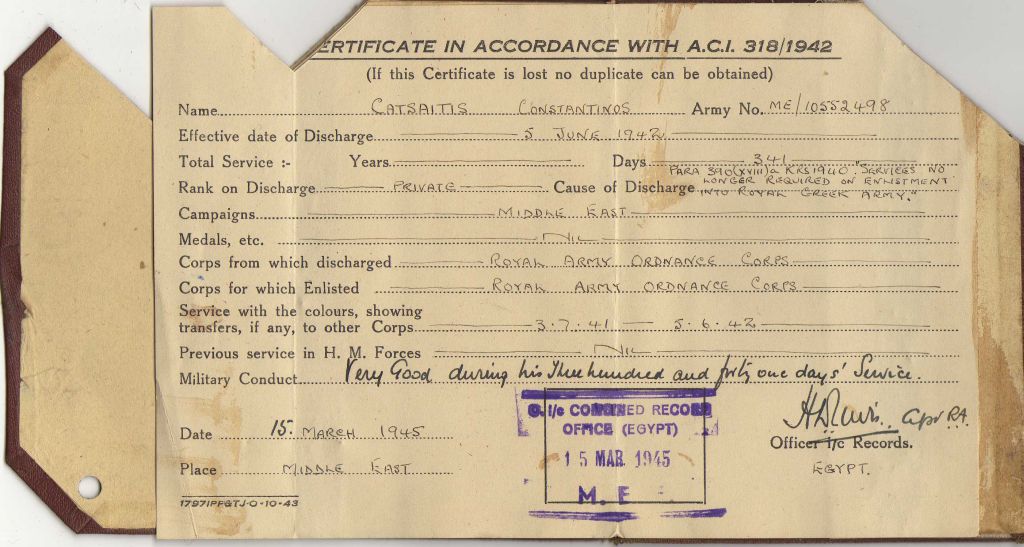 ERTIFICATE IN ACCORDANCE WITH A.C.I. 318/1942
(If this Certificate is lost no duplicate can be obtained)
Name CATSAITIS CONSTANTINOS Army No. ME/10552498
Effective date of Discharge 5 JUNE 1942
Total Service :- Years Days 341
Rank on Discharge PRIVATE Cause of Discharge PARA 390(XVIII)a KRS1940 "SERVICES NO
LONGER REQUIRED ON ENLISTMENT
INTO ROYAL GREEK ARMY."
Campaigns MIDDLE EAST
Medals, etc. NIL
Corps from which discharged ROYAL ARMY ORDNANCE CORPS
Corps for which Enlisted ROYAL ARMY ORDNANCE CORPS
Service with the colours, showing
transfers, if any, to other Corps 3.7.41 — 5.6.42
Previous service in H. M. Forces NIL
Military Conduct Very Good during his Three hundred and forty one days' Service.
O. i/c COMBINED RECORD
OFFICE (EGYPT)
15 MAR. 1945
M. E
Date 15. MARCH 1945
Place MIDDLE EAST
Officer i/c Records.
EGYPT.
17971PFGTJ-O-10-43